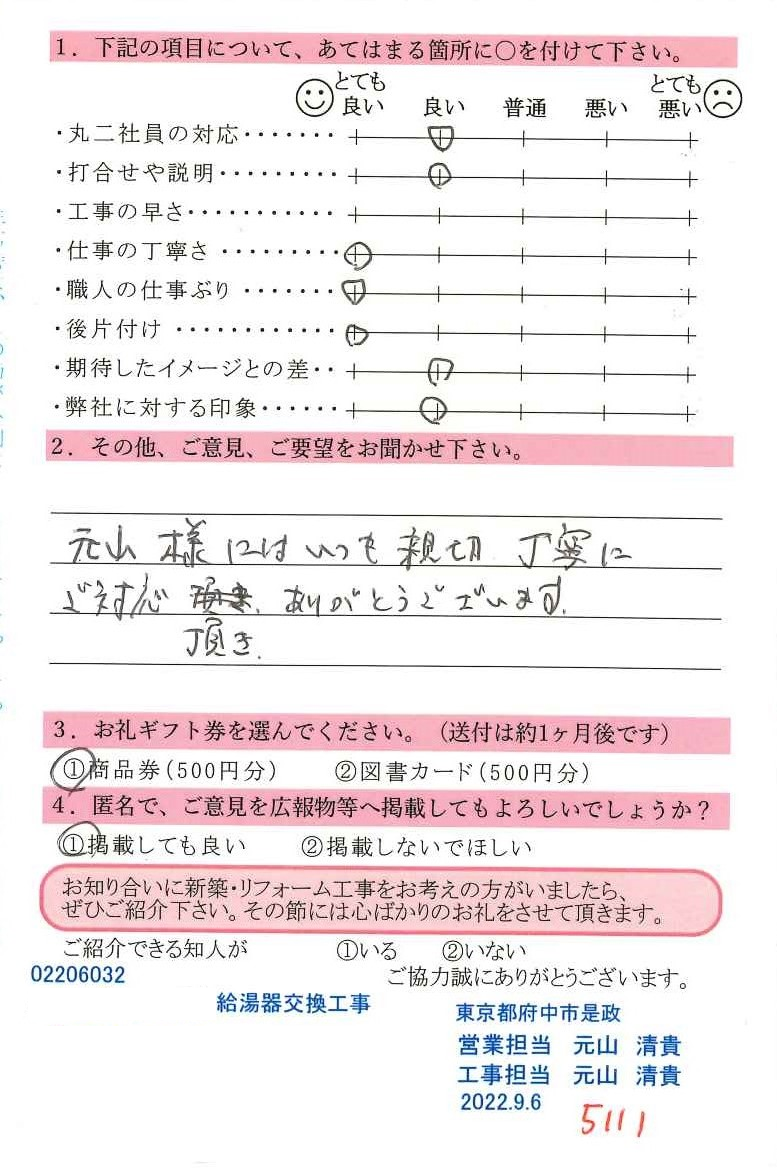 1．下記の項目について、あてはまる箇所に○を付けて下さい。
とても良い 良い 普通 悪い とても悪い
・丸二社員の対応・・・・・・・
・打合せや説明・・・・・・・・・
・工事の早さ・・・・・・・・・・・
・仕事の丁寧さ ・・・・・・・・・
・職人の仕事ぶり ・・・・・・・
・後片付け ・・・・・・・・・・・・
・期待したイメージとの差・・
・弊社に対する印象・・・・・・
2．その他、ご意見、ご要望をお聞かせ下さい。
元山 様にはいつも 親切 丁寧に
ご対応 ありがとうございます。
頂き、
3．お礼ギフト券を選んでください。（送付は約1ヶ月後です）
①商品券（500円分） ②図書カード（500円分）
4．匿名で、ご意見を広報物等へ掲載してもよろしいでしょうか？
①掲載しても良い ②掲載しないでほしい
お知り合いに新築・リフォーム工事をお考えの方がいましたら、
ぜひご紹介下さい。その節には心ばかりのお礼をさせて頂きます。
ご紹介できる知人が ①いる ②いない
02206032
ご協力誠にありがとうございます。
給湯器交換工事
東京都府中市是政
営業担当 元山 清貴
工事担当 元山 清貴
2022.9.6
5111